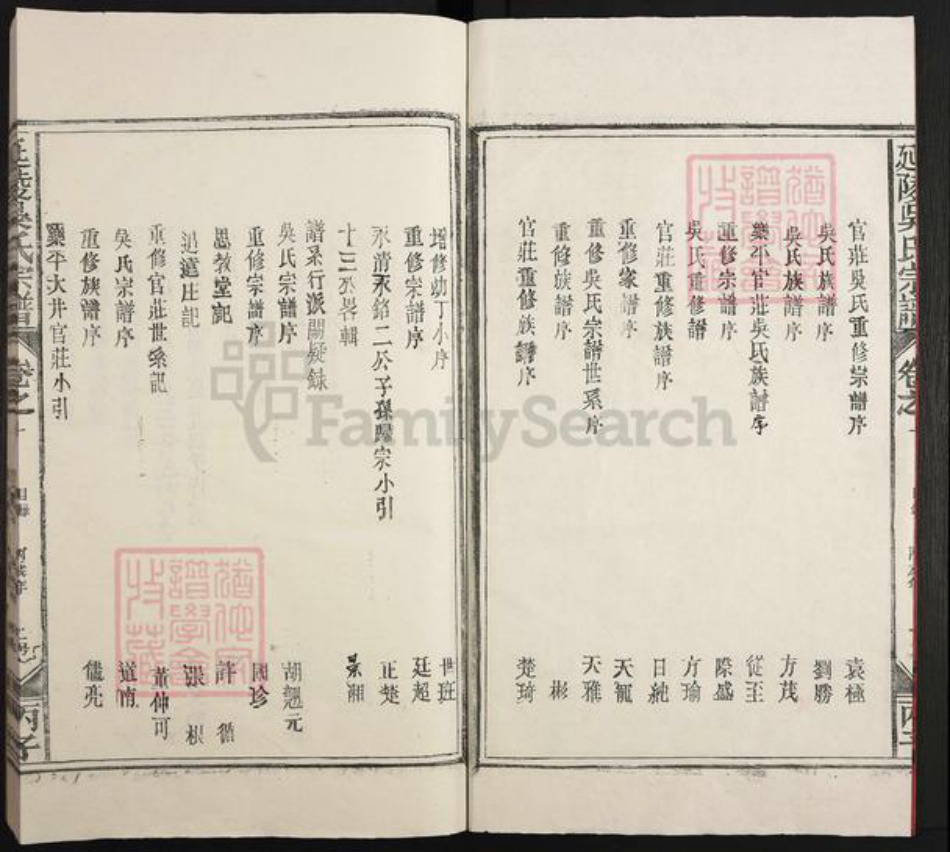 延陵吳氏宗譜
卷之一
丙子
官莊吳氏重修宗譜序 袁極
吳氏族譜序 劉勝
吳氏族譜序 方茂
樂平官莊吳氏族譜序 從至
重修宗譜序 際盛
吳氏重修譜 方瑜
官莊重修族譜序 日純
重修家譜序 天寵
重修吳氏宗譜世系序 天雅
重修族譜序 彬
官莊重修族譜序 楚琦
增修幼丁小序 世珏
重修宗譜序 廷超
永清永銘二公子孫歸宗小引 正楚
十三不畧輯 景湘
譜系行派闕疑錄
吳氏宗譜序 胡翹元
重修宗譜序 國珍
思教堂記 許循
追遠庄記 張根
重修官莊世系記 黃仲可
吳氏宗譜序 道南
重修族譜序 儒亮
樂平大井官莊小引
延陵吳氏宗譜
卷之一
目錄
丙子
猶他家譜學會收藏
猶他家譜學會收藏
FamilySearch